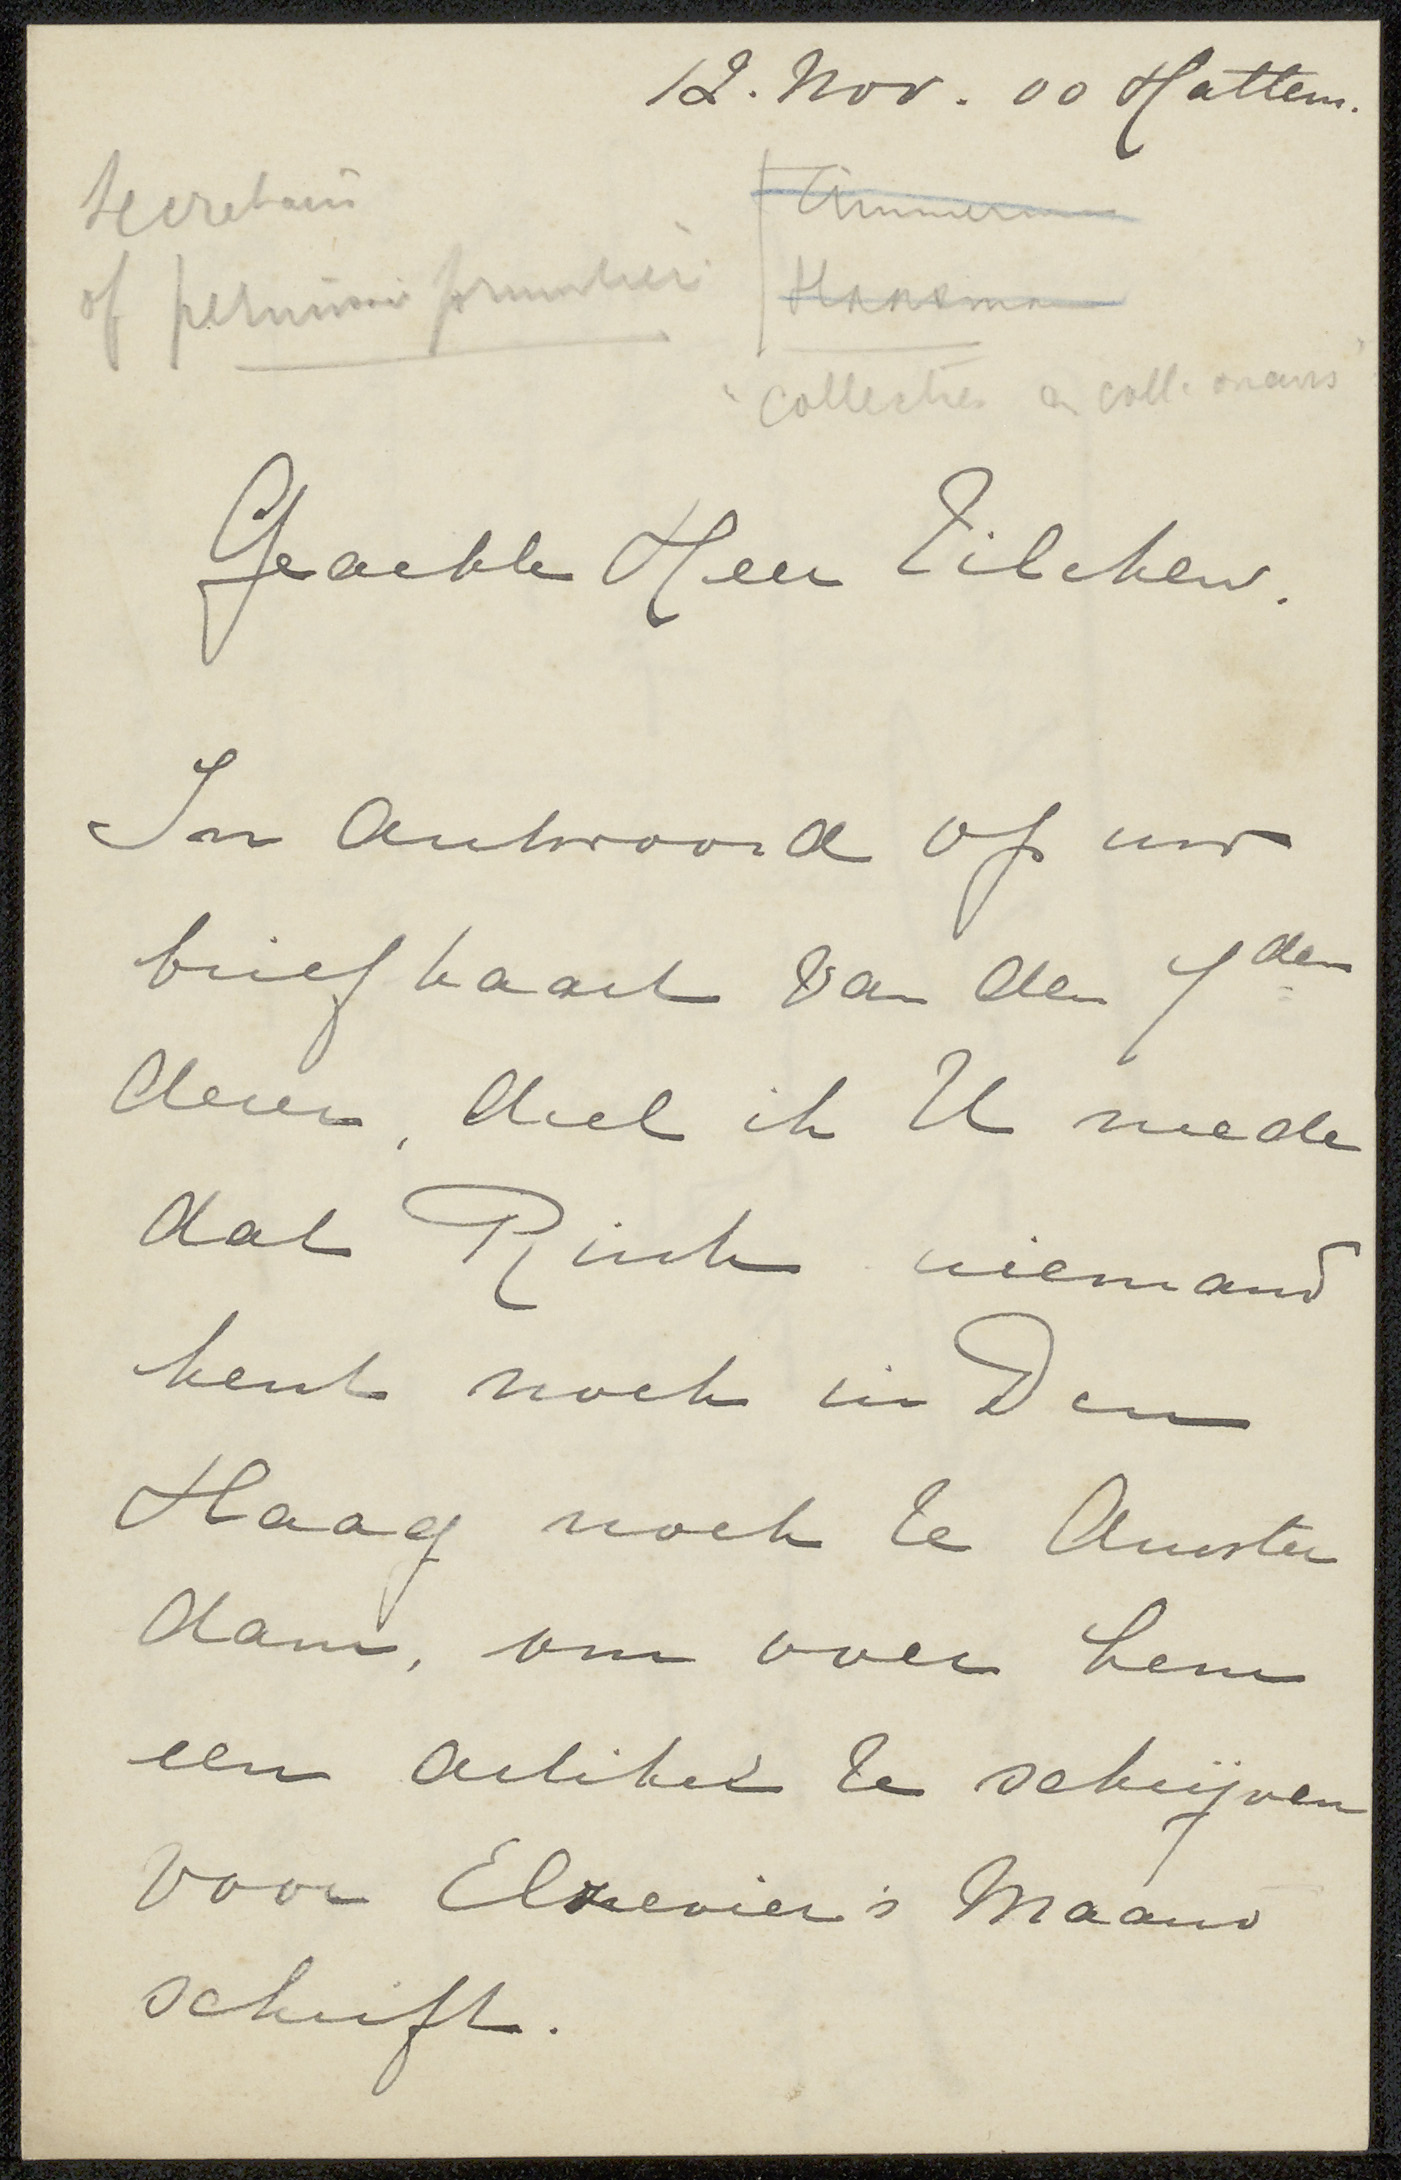 12. Nov. 00 Hattem.
Secretaris
of
collecties en coll.
Geachte Heer Zilcken.
In antwoord op uw
briefkaart van den 7den
dezer, deel ik U mede
dat Rink niemand
kent noch in Den
Haag noch te Amster
dam, om over hem
een artikel te schrijven
voor Elzevier's Maand
schrift.